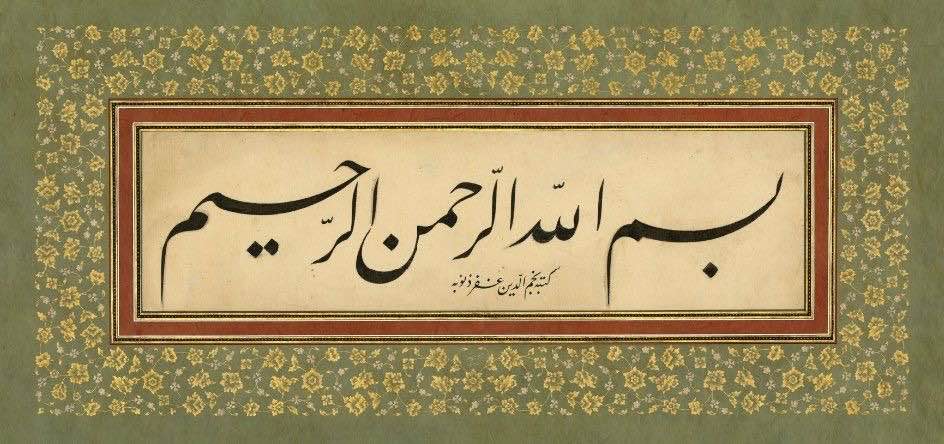 بسم اللّه الرّحمن الرّحيم
كتبه نجم الدين غفر ذنوبه